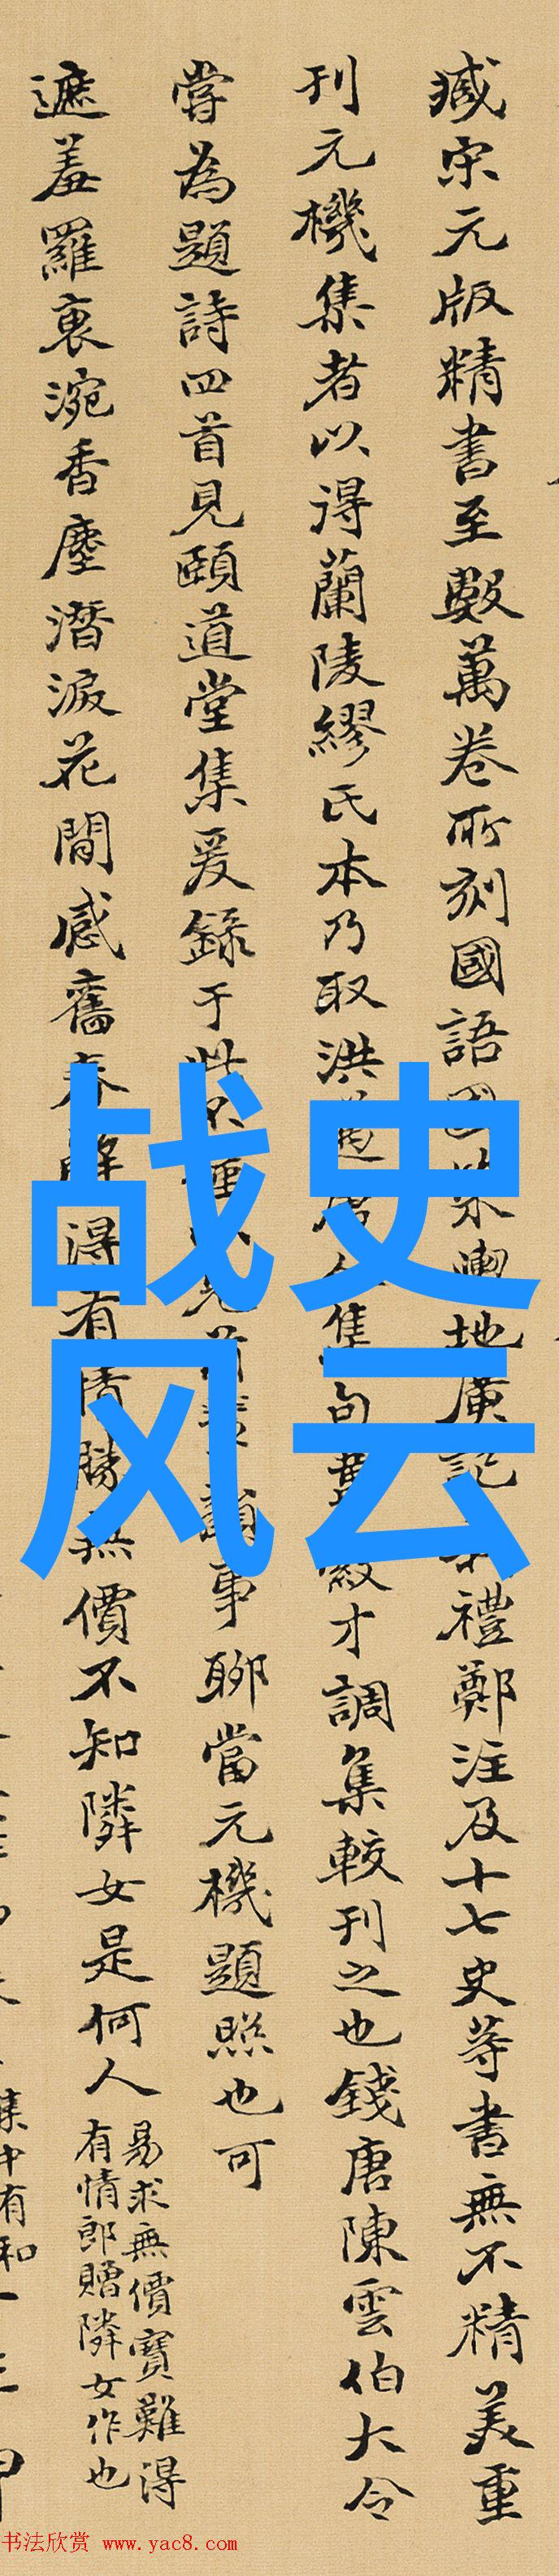 臧宋元版精書至數萬卷所刻國語國策輿地廣記儀禮鄭注及十七史等書無不精美重
刊元機集者以得蘭陵繆氏本乃取洪邁唐人集句黃才調集較刊之也錢唐陳雲伯大令
嘗為題詩四首見頤道堂集爰錄于此事聊當元機題照也可
遮羞羅裏涴香塵潛淚花間感舊春解得有情勝無價不知隣女是何人
易求無價寶難得
有情郎贈隣女作也
集中有和
战史
风云
书法欣赏 www.yac8.com